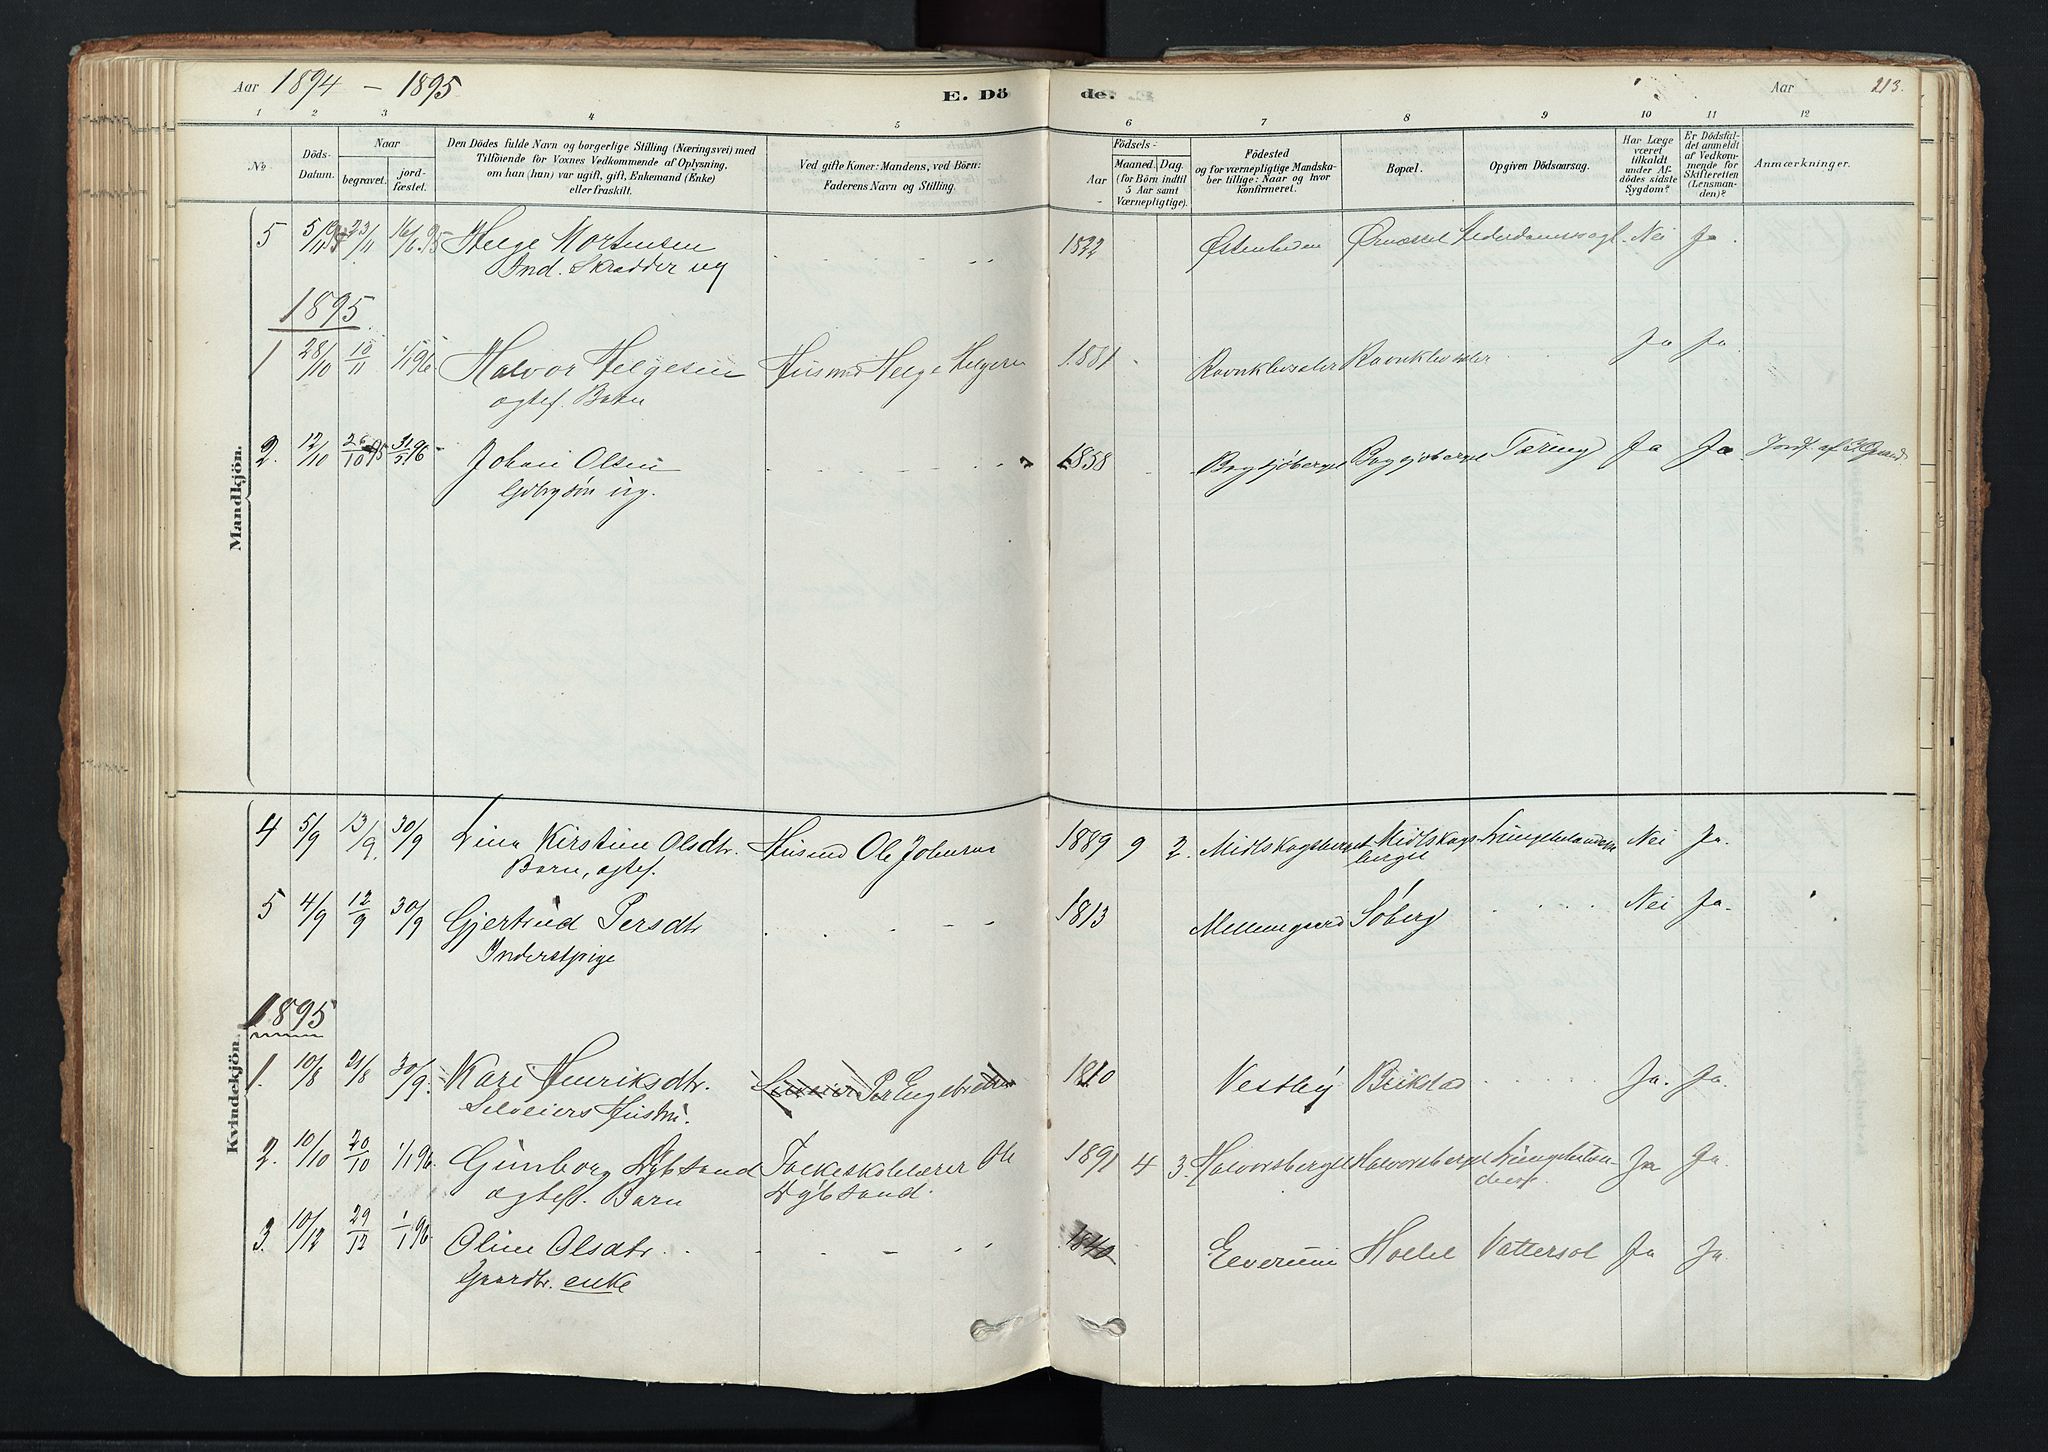 Aar 1894 – 1895 E. Dö
de. Aar 213.
1 2 3 4 5
6 7 8 9 10 11 12
No
Döds-Datum.
Naar
begravet.
jord-fæstet.
Den Dödes fulde Navn og borgerlige Stilling (Næringsvei) med
Tilföiende for Voxnes Vedkommende af Oplysning,
om han (hun) var ugift, gift, Enkemand (Enke)
eller fraskilt.
Ved gifte Koner: Mandens, ved Börn:
Faderens Navn og Stilling.
Födsels-
Aar
Maaned. Dag.
(for Börn indtil
5 Aar samt
Værnepligtige).
Födested
og for værnepligtige Mandska-
ber tillige: Naar og hvor
konfirmeret.
Bopæl.
Opgiven Dödsaarsag.
Har Læge
været
tilkaldt
under Af-
dödes sidste
Sygdom?
Er Dödsfal-
det anmeldt
af Vedkom-
mende for
Skifteretten
(Lensman-
den)?
Anmærkninger.
Mandkjön.
5 5/11 23/11 16/6 95 Helge Mortensen 1822 Nei Ja
Ind. Skrædder ug
1895
1 28/10 10/11 1/1 96 Halvor Helgesen Husmd Helge Helgesen 1881 Ja Ja.
ægtef. Barn
2. 12/10 26/10 95 31/5 96 Johan Olsen 1858 Tæring Ja Ja Jordf. af
ug.
Kvindekjön.
4 5/9 13/9. 30/9 Lina Kirstine Olsdtr. Husmd Ole Johnsen 1889 9 2. Midtskogsberget Midtskogs- Nei Ja.
Barn, ægtef. berget
5 4/9 12/9 30/9 Gjertrud Persdtr 1813 Mellemgaard Söberg Nei Ja.
Inderstpige
1895
1. 10/8 21/8 30/9. Kari Henriksdtr. Per Engebretsen 1810 Vestby Ja. Ja.
Selveiers Hustru.
2. 10/10 20/10 1/1 96. Gunborg Dybsand Folkeskolelærer Ole 1891 4 3. Halvorsberget Halvorsberget Lungebetæn- Ja Ja.
ægtef. Barn Dybsand.
3. 10/12 29/12 1/1 96 Oline Olsdtr. 1840 Elverum Vattersot Ja Ja
Gaardbr. enke